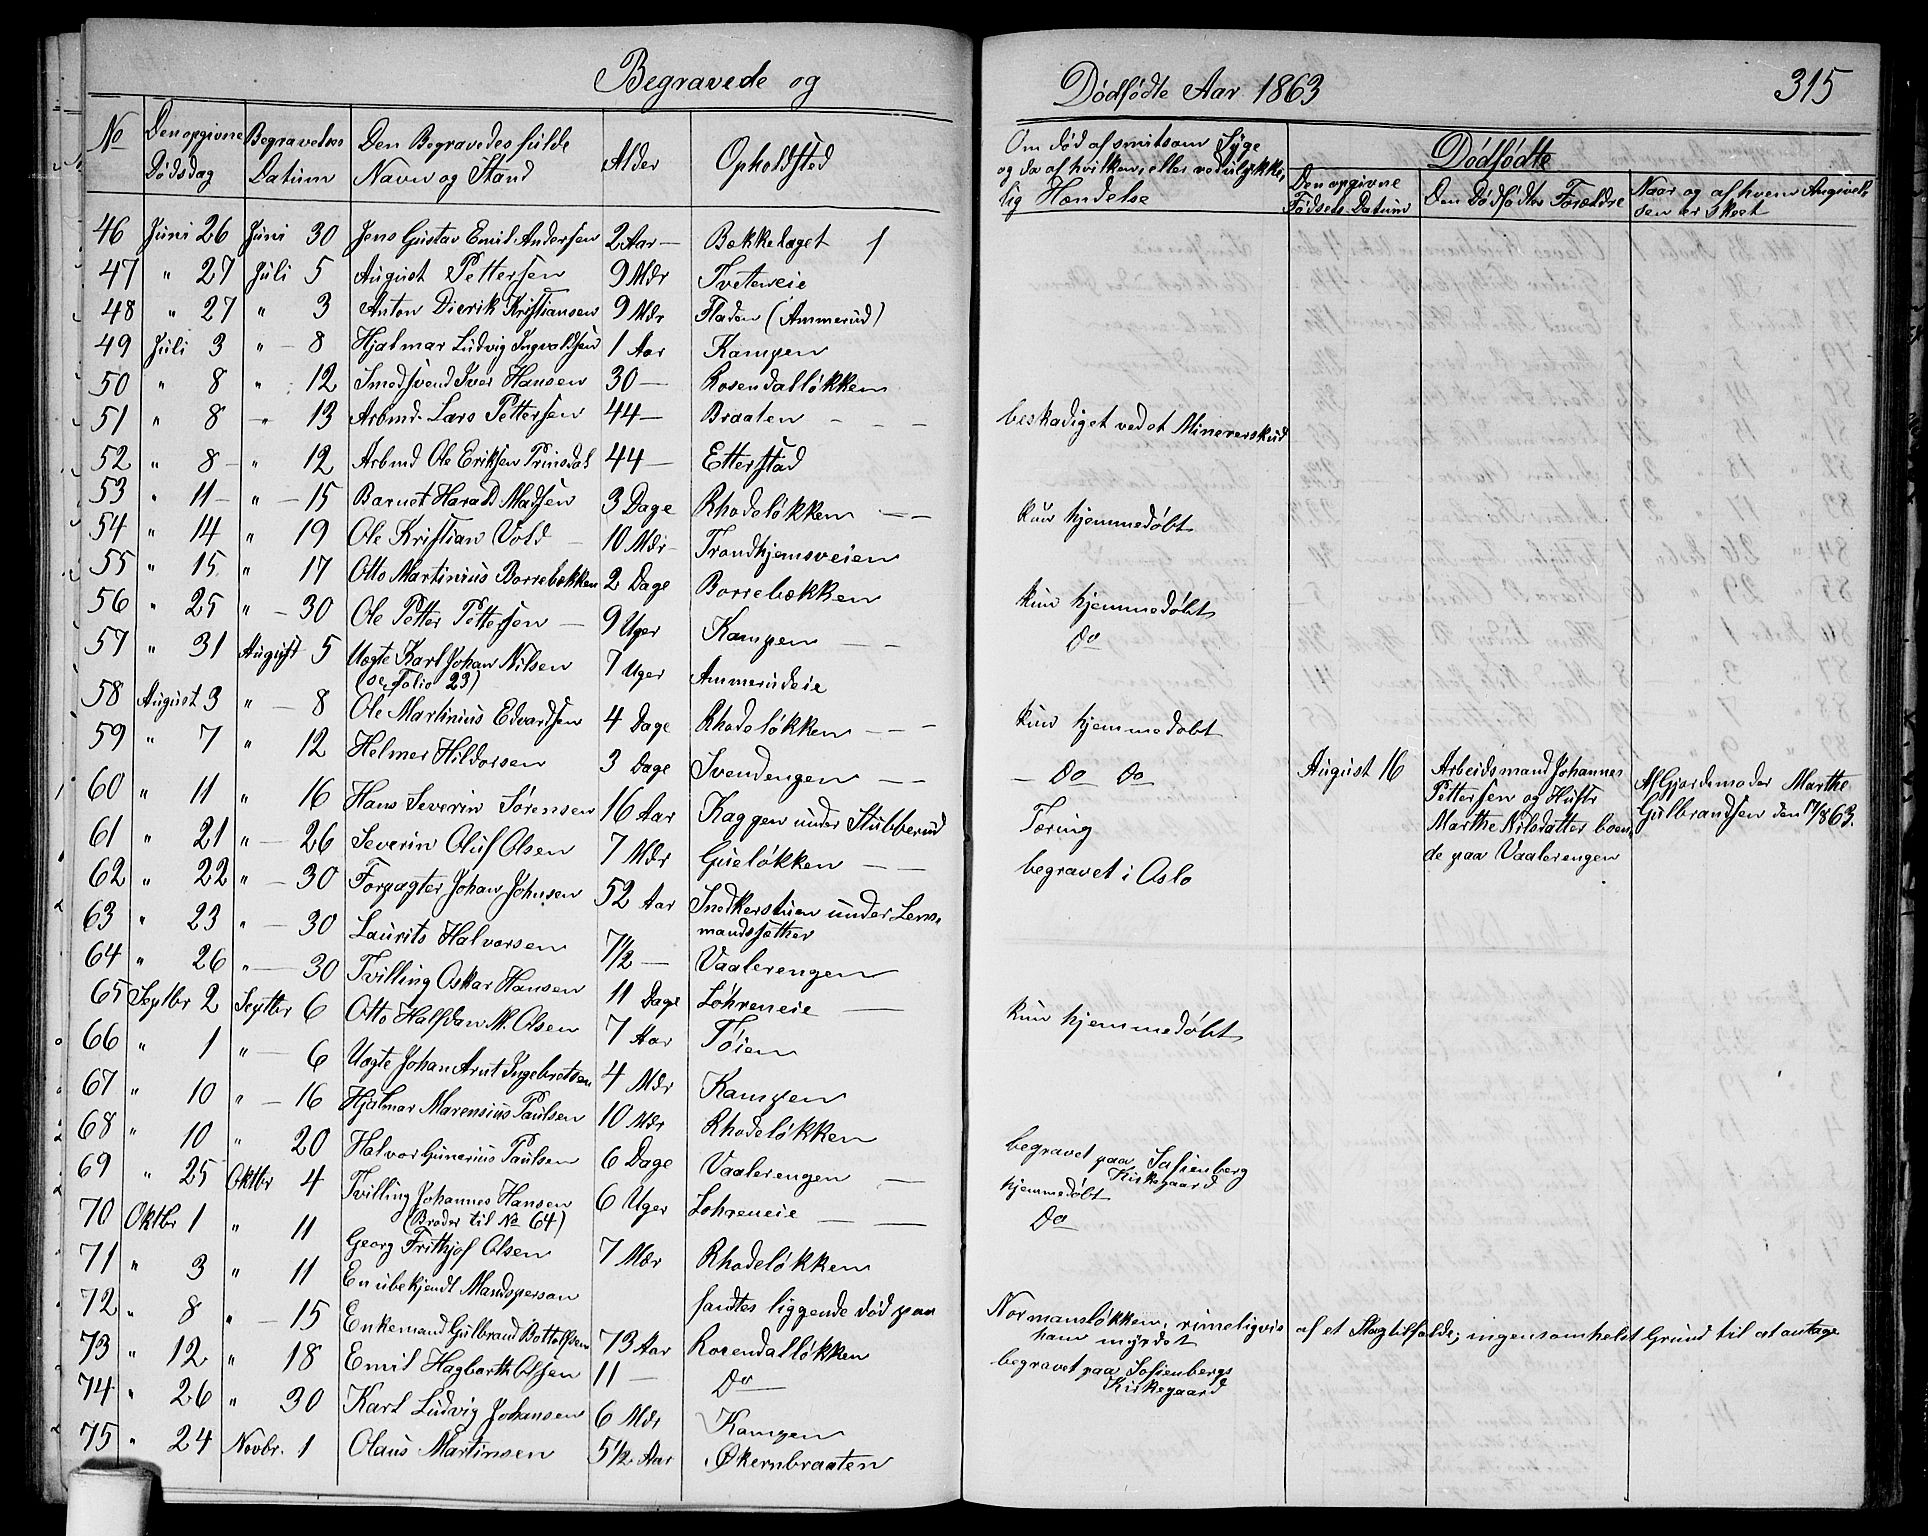 Begravede og
No Den opgivne Dødsdag Begravelses Datum Den Begravedes fulde Navn og Stand Alder Opholdsted
46 Juni 26 Juni 30 Jens Gustav Emil Andersen 2 Aar — Bækkelaget 1
47 " 27 Juli 5 August Pettersen 9 Mdr Tveteneie
48 " 27 " 3 Anton Dierik Kristiansen 9 Mdr Fladen (Ammerud)
49 Juli 3 " — 8 Hjalmar Ludvig Ingvaldsen 1 Aar Kampen
50 " 8 " 12 Smedsvend Iver Hansen 30 — Rosendalløkken
51 " 8 " 13 Arbmd. Lars Pettersen 44 — Braaten — — —
52 " 8 — " 12 Arbmd Ole Eriksen Prinsdal 44 — Etterstad
53 " 11 — " — 15 Barnet Harald Madsen 3 Dage Rhodeløkken — —
54 " 14 " 19 Ole Kristian Vold — 10 Mdr Trondhjemsveien
55 " 15 " 17 Otto Martinius Borrebækken 2 Dage Borrebækken
56 " 25 " — 30 Ole Petter Pettersen — 9 Uger Kampen — —
57 " 31 August 5 Uægte Karl Johan Nilsen 7 Uger Ammerudeie
(se Folio 23)
58 August 3 " — 8 Ole Martinius Edvardsen 4 Dage Rhodeløkken — — —
59 " 7 " 12 Helmer Hildorsen 3 Dage Svendengen — —
60 " 11 " 16 Hans Severin Sørensen 16 Aar Kaggen under Stubberud
61 " 21 " — 26 Severin Oluf Olsen 7 Mdr Grieløkken —
62 " 22 " — 30 Forpagter Johan Johnsen 52 Aar Snedkerstuen under Lens-
mandssæther
63 " 23 " — 30 Laurits Halvorsen 7½ — Vaalerengen
64 " 26 " — 30 Tvilling Oskar Hansen 11 Dage Lohreneie —
65 Septbr 2 Septbr 6 Otto Halfdan M. Olsen 7 Aar Tøien
66 " 1 " — 6 Uægte Johan Arnt Ingebretsen 4 Mdr Kampen
67 " 10 " — 16 Hjalmar Marensius Paulsen 10 Mdr Rhodeløkken
68 " 10 " 20 Halvor Gunerius Paulsen 6 Dage Vaalerengen —
69 " 25 Oktbr 4 Tvilling Johannes Hansen 6 Uger Lohreneie — —
(Broder til No 64)
70 Oktbr 1 " 11 Georg Frithjof Olsen 7 Mdr Rhodeløkken
71 " 3 " 11 En ubekjendt Mandsperson fandtes liggende død paa
72 " 8 " — 15 Enkemand Gulbrand Bottolfsen 73 Aar Rosendalløkken
73 " 12 " 18 Emil Hagbarth Olsen 11 — Do
74 " 26 " 30 Karl Ludvig Johansen 6 Mdr Kampen
75 " 24 Novbr. 1 Olaus Martinsen 5½ Aar Økernbraaten
Dødfødte Aar 1863 315
Om død af smitsom Syge
og da af hvilken, eller ved ulykke-
lig Hændelse
Dødfødte
Den opgivne Fødsels Datum Den Dødfødtes Forældre Naar og af hvem Angivel-
sen er skeet
beskadiget ved et Minererskud
kun hjemmedøbt
kun hjemmedøbt
Do
kun hjemmedøbt
— Do Do
August 16 Arbeidsmand Johannes
Pettersen og Hustr
Marthe Nilsdatter boen-
de paa Vaalerengen
Af Gjordemoder Marthe
Gulbrandsen den 17/8 63.
Tæring
begravet i Oslo
kun hjemmedøbt
begravet paa Sofienberg
Kirkegaard
hjemmedøbt
Do
Normansløkken, rimeligvis af et Slagtilfælde; ingensomhelst Grund til at antage
ham myrdet
begravet paa Sofienbergs
Kirkegaard